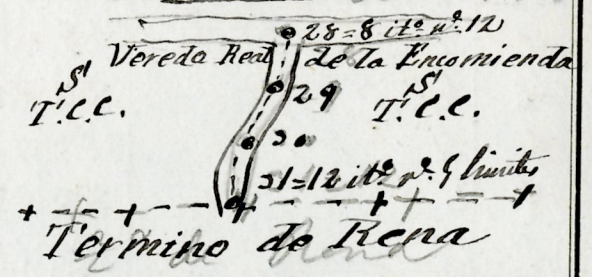 28=8 itº nº 12
Vereda Real de la Encomienda
S¹ S¹
T.C.C. 29 T.C.C.
30
31=12 itº nº 9 limites
Termino de Rena